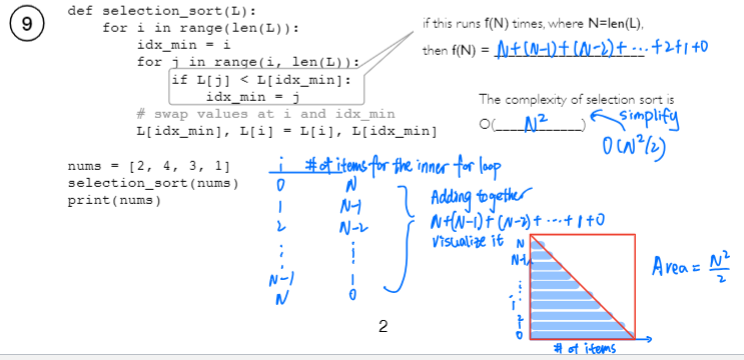 9
def selection_sort(L):
    for i in range(len(L)):
        idx_min = i
        for j in range(i, len(L)):
            if L[j] < L[idx_min]:
                idx_min = j
        # swap values at i and idx_min
        L[idx_min], L[i] = L[i], L[idx_min]
nums = [2, 4, 3, 1]
selection_sort(nums)
print(nums)
if this runs f(N) times, where N=len(L),
then f(N) = N+(N-1)+(N-2)+ ... +2+1+0
The complexity of selection sort is
O( N² )
simplify
O(N²/2)
i # of items for the inner for loop
0 N
1 N-1
2 N-2
⋮ ⋮
N-1 1
N 0
Adding together
N+(N-1)+(N-2)+ ... +1+0
visualize it
N
N-1
⋮
i
2
1
0
# of items
Area = N²/2
2